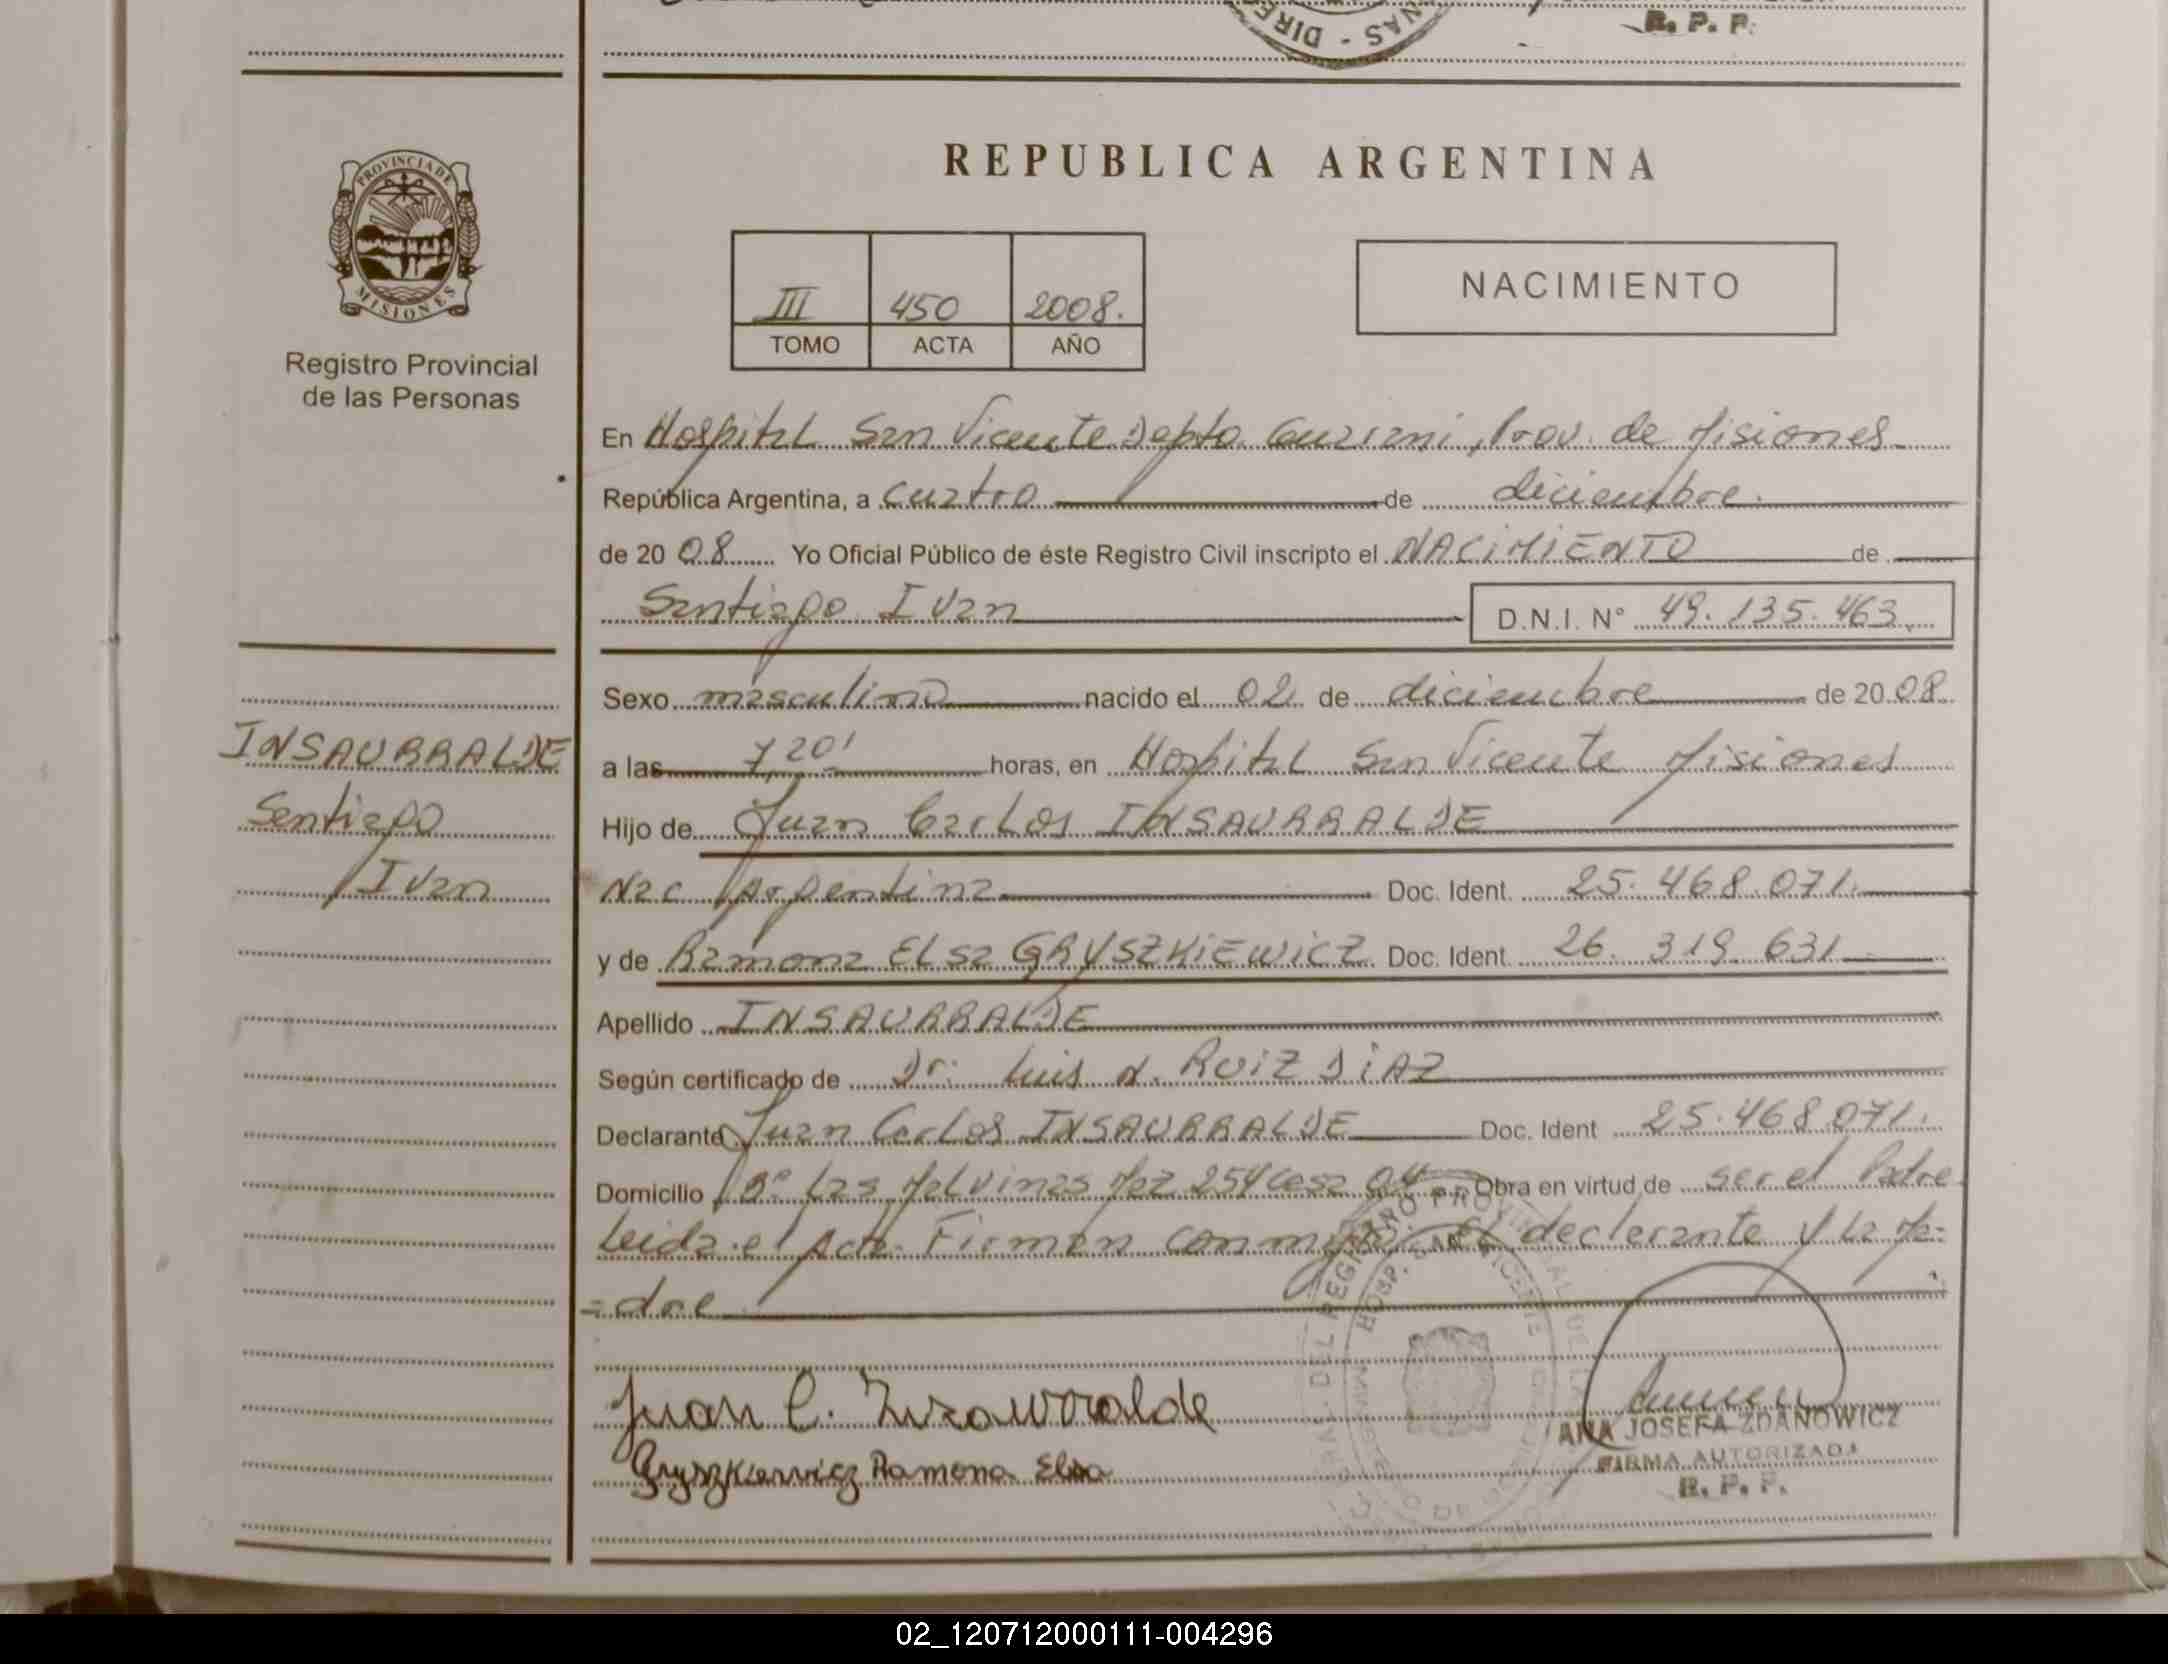 NAS - DIRE
R. P. P.
PROVINCIA DE
MISIONES
Registro Provincial
de las Personas
REPUBLICA ARGENTINA
III 450 2008.
TOMO ACTA AÑO
NACIMIENTO
En Hospital San Vicente Depto. Guarani, Prov. de Misiones
República Argentina, a cuatro de diciembre.
de 2008 Yo Oficial Público de éste Registro Civil inscripto el NACIMIENTO de
Santiago Ivan D.N.I. N° 49.135.463
Sexo masculino nacido el 02 de diciembre de 2008
INSAURRALDE
Santiago
Ivan
a las 7,20' horas, en Hospital San Vicente Misiones
Hijo de Juan Carlos INSAURRALDE
Nac Argentina Doc. Ident. 25.468.071.
y de Ramona Elsa GRYSZKIEWICZ Doc. Ident. 26.319.631
Apellido INSAURRALDE
Según certificado de Dr. Luis N. RUIZ DIAZ
Declarante Juan Carlos INSAURRALDE Doc. Ident 25.468.071.
Domicilio B° Las Malvinas Mz 254 casa 04 Obra en virtud de ser el Padre
Leida el Acta. Firman conmigo el declarante y la Ma-
=dre
Juan C. Inzaurralde
Gryszkiewicz Ramona Elsa
ANA JOSEFA ZDANOWICZ
FIRMA AUTORIZADA
R. P. P.
02_120712000111-004296